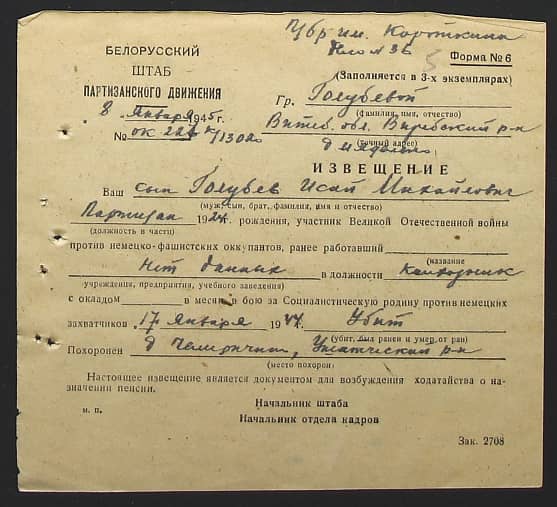 Цбр им. Короткина
БЕЛОРУССКИЙ
ШТАБ
ПАРТИЗАНСКОГО ДВИЖЕНИЯ
8 Января 1945 г.
№
Форма № 6
(Заполняется в 3-х экземплярах)
Гр. Голубевой
(фамилия, имя, отчество)
Витеб. обл. р-н
(точный адрес)
ИЗВЕЩЕНИЕ
Ваш сын Голубев Исай Михайлович
(муж, сын, брат, фамилия, имя и отчество)
Партизан 1924 г. рождения, участник Великой Отечественной войны
(должность в части)
против немецко-фашистских оккупантов, ранее работавший
(название
Нет данных в должности
учреждения, предприятия, учебного заведения)
с окладом в месяц в бою за Социалистическую родину против немецких
захватчиков 17 Января 1944 Убит
(убит, был ранен и умер от ран)
Похоронен д. Ушачский р-н
(место похорон)
Настоящее извещение является документом для возбуждения ходатайства о на-
значении пенсии.
Начальник штаба
м. п.
Начальник отдела кадров
Зак. 2708